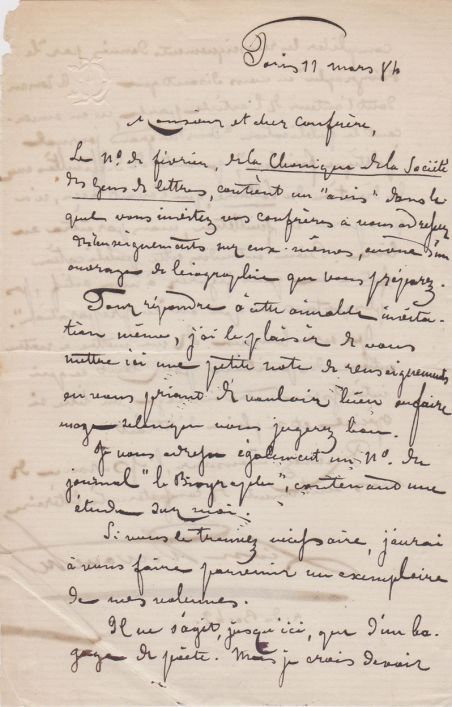 Paris 11 mars 86
Monsieur et cher confrère,
Le No. de février, de la Chronique de la Société
des Gens de lettres, contient un "avis" dans le-
quel vous invitez vos confrères à vous adresser
des renseignements sur eux-mêmes, en vue d'un
ouvrage de biographie que vous préparez.
Pour répondre à cette aimable invita-
tion même, j'ai le plaisir de vous
mettre ici une petite note de renseignements
en vous priant de vouloir bien en faire
usage selon que vous jugerez bon.
Je vous adresse également un No. du
journal "le Biographe", contenant une
étude sur moi.
Si vous le trouvez nécessaire, j'aurai
à vous faire parvenir un exemplaire
de mes volumes.
Il ne s'agit, jusqu'ici, que d'un ba-
gage de poète. Mais je crois devoir